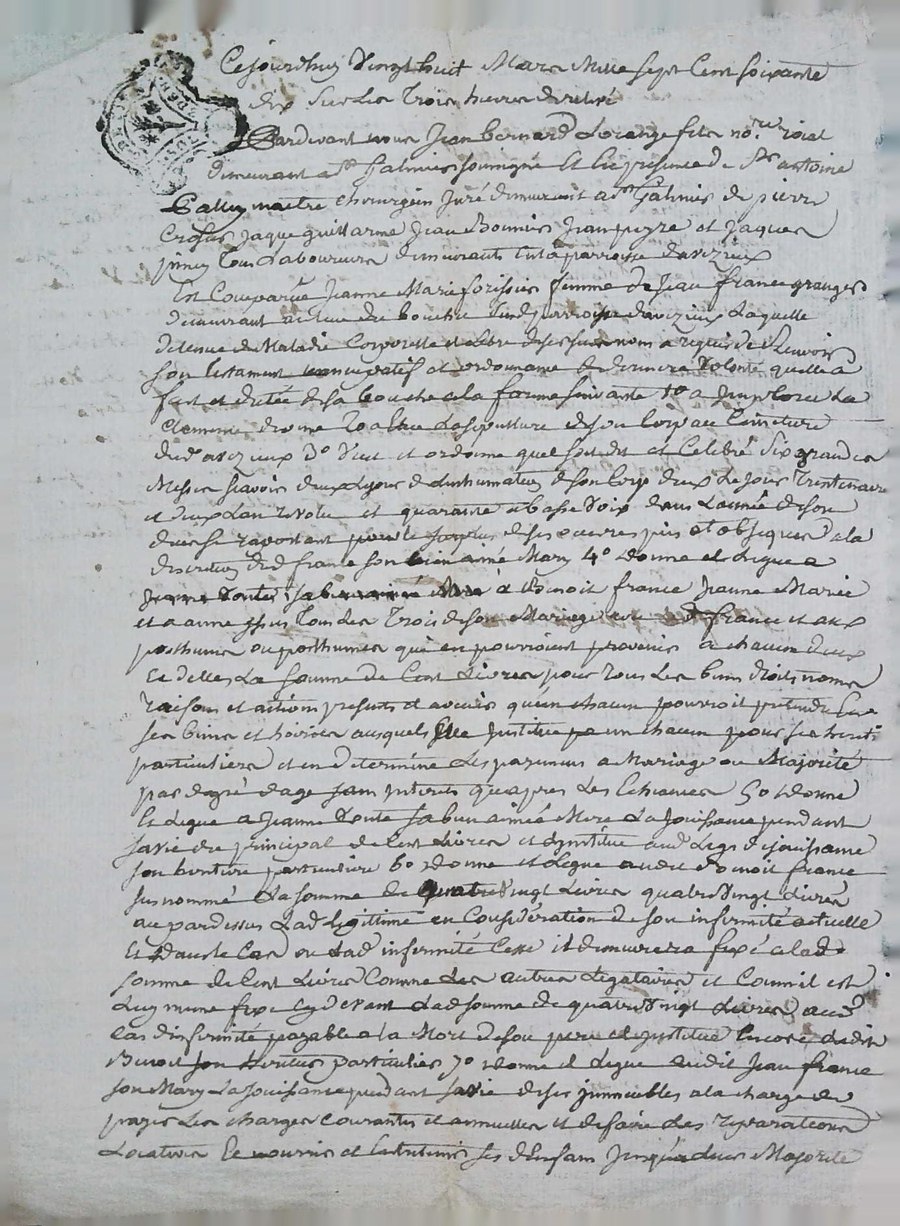 Cejourdhuy Vingt huit Mars Mille sept Cent soixante
dix Sur Les Trois heures de relevé
Pardevant nous Jean bernard Lorange fils no.re roial
demeurant a St Galmier soussigné Et En presence de Sr antoine
maitre chirurgien Juré demeurant a St Galmier de pierre
jaque guillarme Jean Jean peyre et Jaques
Tous Laboureurs demeurants En la parroisse daveizieux
Est Comparüe Jeanne Marie forissier femme de Jean france granger
demeurant au Lieu du bouchu susd parroisse daveizieux Laquelle
detenue de Maladie Corporelle et Libre de ses sens nous a requis de Recevoir
son testament noncupatif et ordonnance de derniere Volonté quelle a
fait et dicté de sa bouche a la forme suivante 1o a Imploré La
clemence divine 2o a Elue La sepulture de son Corps au Cimetiere
dud aveizieux 3o Veut et ordonne quil soit dit et Celebré Six grandes
Messes scavoir deux Le jour de Linhumation de son Corps deux Le Jour Trentenaire
et deux Lan revolu et quarante a basse Voix dans Lannée de son
deces se raportant pour le surplus de ses œuvres pies et obseques a la
discretion dud france son bien aimé Mary 4o donne et Legue a
a Benoit france Jeanne Marie
et a anne Tous Les Trois de son Mariage avec led france et aux
posthumes ou posthumes qui en pourroient provenir a chacun deux
Et delles La somme de Cent Livres pour Tous Les biens droits noms
raisons et actions presents et avenir quun chacun pourroit pretendre sur
ses biens et hoirie ausquels Elle Institue un chacun pour ses heritiers
particuliers et en determine Les payements a Mariage ou Majorité
par degré dage sans Interets quapres Les Echeances 5o donne
Et Legue a Jeanne sa bien aimée Mere La Jouissance pendant
sa vie du principal de Cent Livres et Linstitue aud Legs de jouissance
son heritiere particuliere 6o donne et Legue audit Benoit france
sus nommé La somme de quatre Vingt Livres quatre Vingt Livres
au par dessus Lad Legitime en Consideration de son infirmité actuelle
Et dans le Cas ou Lad infirmité Cesse il demeurera fixé a lad
somme de Cent Livres Comme Les autres Legataires et Comme il est
Luy meme fixé Cy devant Lad somme de quatre Vingt Livres au
Cas dinfirmité payable a la Mort de son pere et Institue Encore Ledit
Benoit son heritier particulier 7o donne et Legue audit Jean france
son Mary La Jouissance pendant sa vie de ses immeubles a la charge de
payer Les charges Courantes et annuelles et de faire Les reparations
Locatives Et nourrir et Entretenir ses d Enfans Jusqua leur Majorité